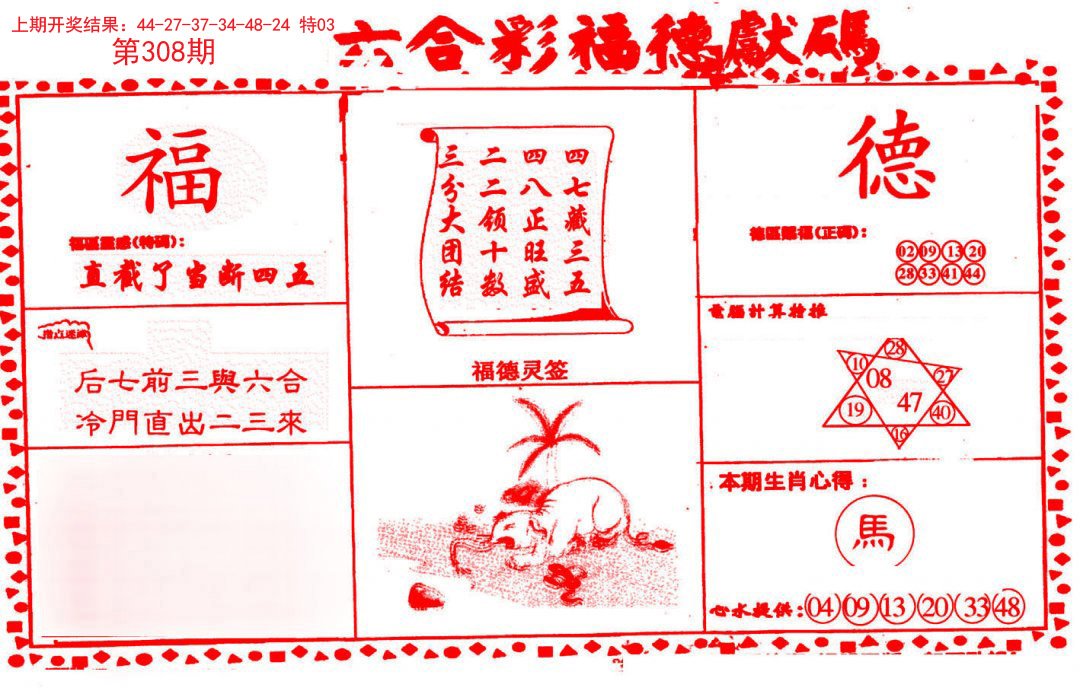 上期开奖结果：44-27-37-34-48-24 特03
第308期
六合彩福德獻碼
福
福區靈感(特碼)：
直截了当断四五
指点迷津
后七前三與六合
冷門直出二三來
四七藏三五
四八正旺盛
二二领十数
三分大团结
福德灵签
德
德區賜福(正碼)：
02 09 13 20
28 33 41 44
電腦計算撿推
28
10
27
08
47
19
40
16
本期生肖心得：
馬
心水提供：04 09 13 20 33 48